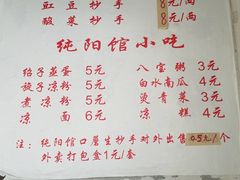 豇豆抄手 8元/两
酸菜抄手 8元/两
纯阳馆小吃
绍子蒸蛋 5元 八宝粥 3元
旋子凉粉 5元 白水南瓜 4元
煮凉粉 5元 烫青菜 3元
凉面 6元 凉糕 4元
注：纯阳馆口蘑生抄手对外出售 0.5元/个
外卖打包盒1元/套